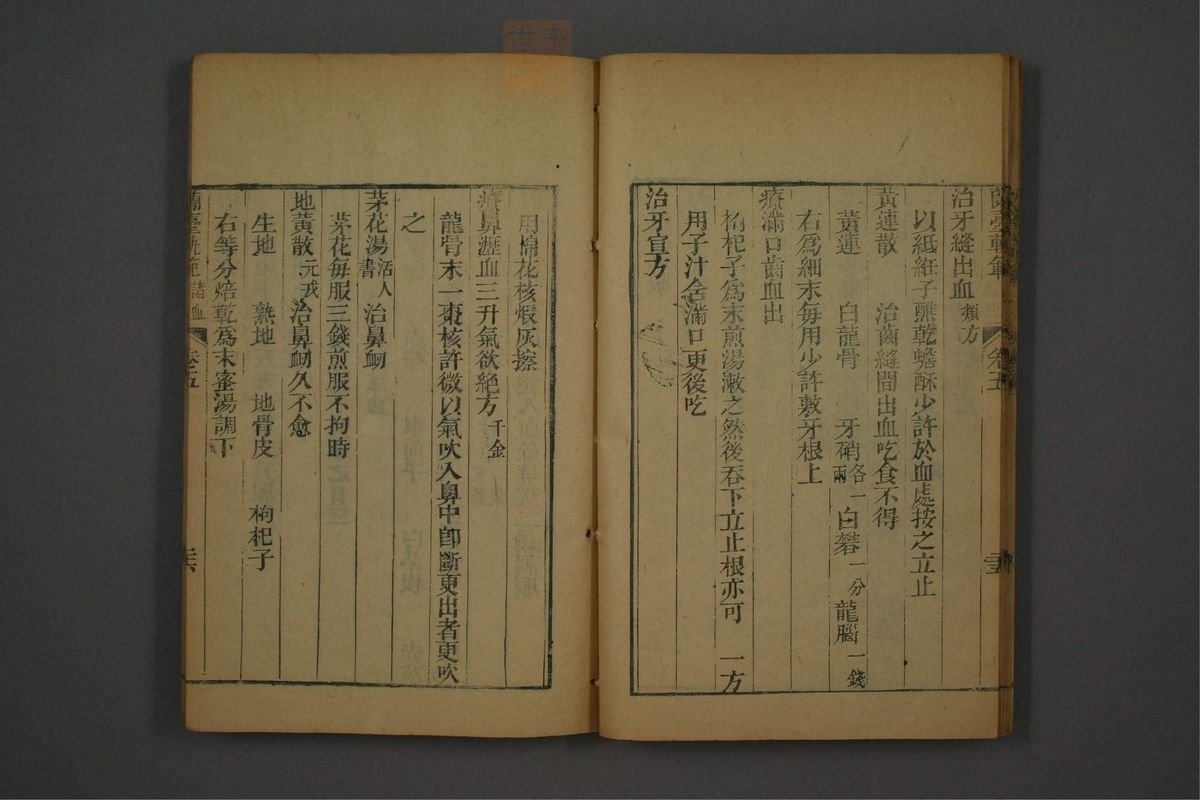 治牙縫出血類方
以紙紝子蘸乾蟾酥少許於血處按之立止
黃連散 治齒縫間出血吃食不得
黃連 白龍骨 牙硝各一兩 白礬一分 龍腦一錢
右爲細末每用少許敷牙根上
療滿口齒血出
枸杞子爲末煎湯漱之然後吞下立止根亦可 一方
用子汁含滿口更後吃
治牙宣方
用棉花核煆灰擦
療鼻瀝血三升氣欲絕方千金
龍骨末一棗核許微以氣吹入鼻中卽斷更出者更吹
之
茅花湯活人書 治鼻衂
茅花每服三錢煎服不拘時
地黃散元戎 治鼻衂久不愈
生地 熟地 地骨皮 枸杞子
右等分焙乾爲末蜜湯調下
蘭臺軌範 諸血 卷五